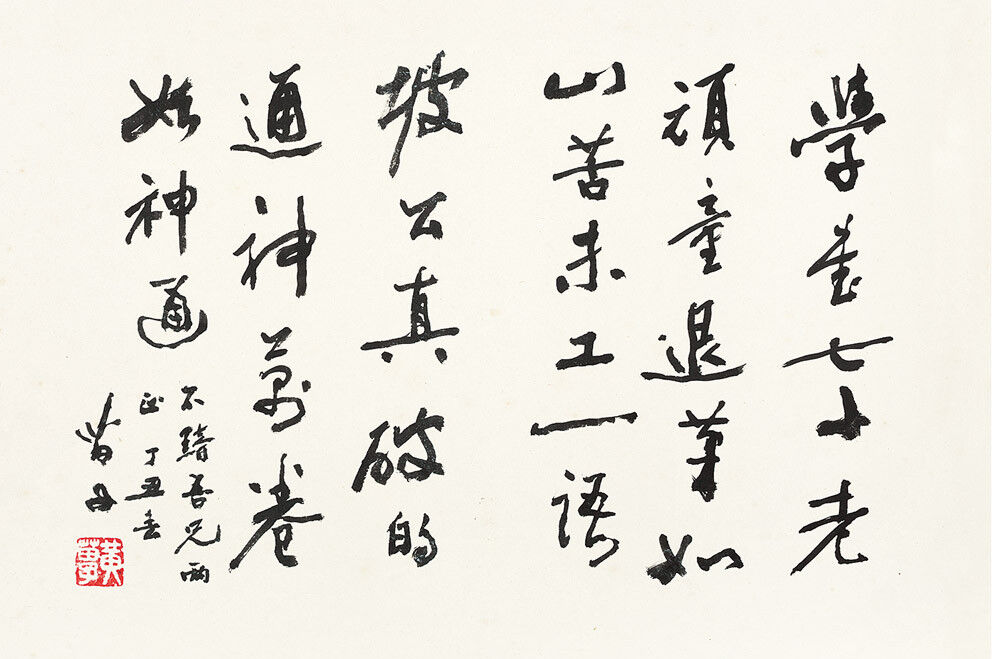 學書七十老
頑童退筆如
山苦未工一語
坡公真破的
通神萬卷
始神通
不吾兄兩
正丁丑
苗子
黃